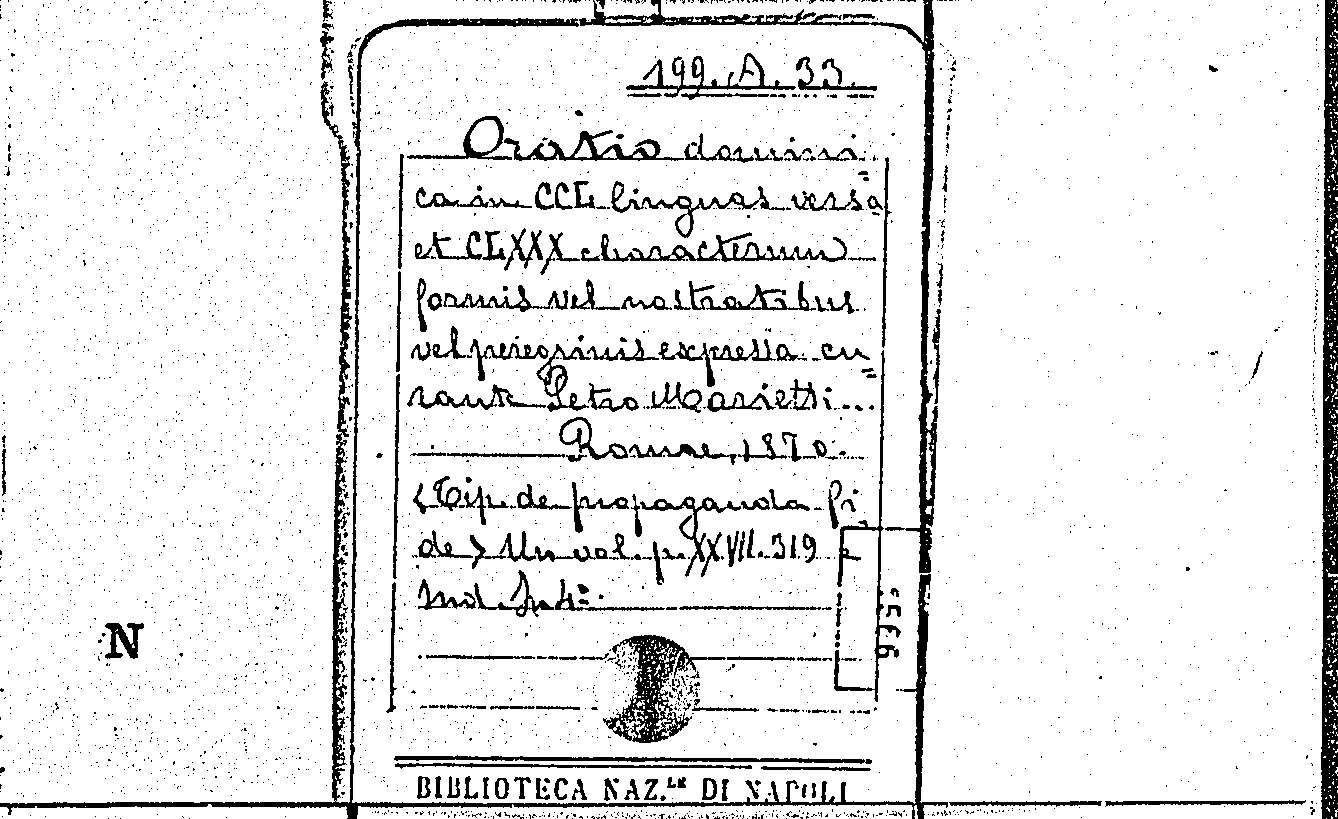 199. A. 33.
Oratio domini=
ca in CCL linguas versa
et CLXXX characterum
formis vel nostratibus
vel peregrinis expressa cu=
rante Petro Marietti...
Romae, 1870.
(Tip. de propaganda fi=
de) Un vol. p. XXVII. 319 e
Ind. In 4º.
N
BIBLIOTECA NAZ.LE DI NAPOLI